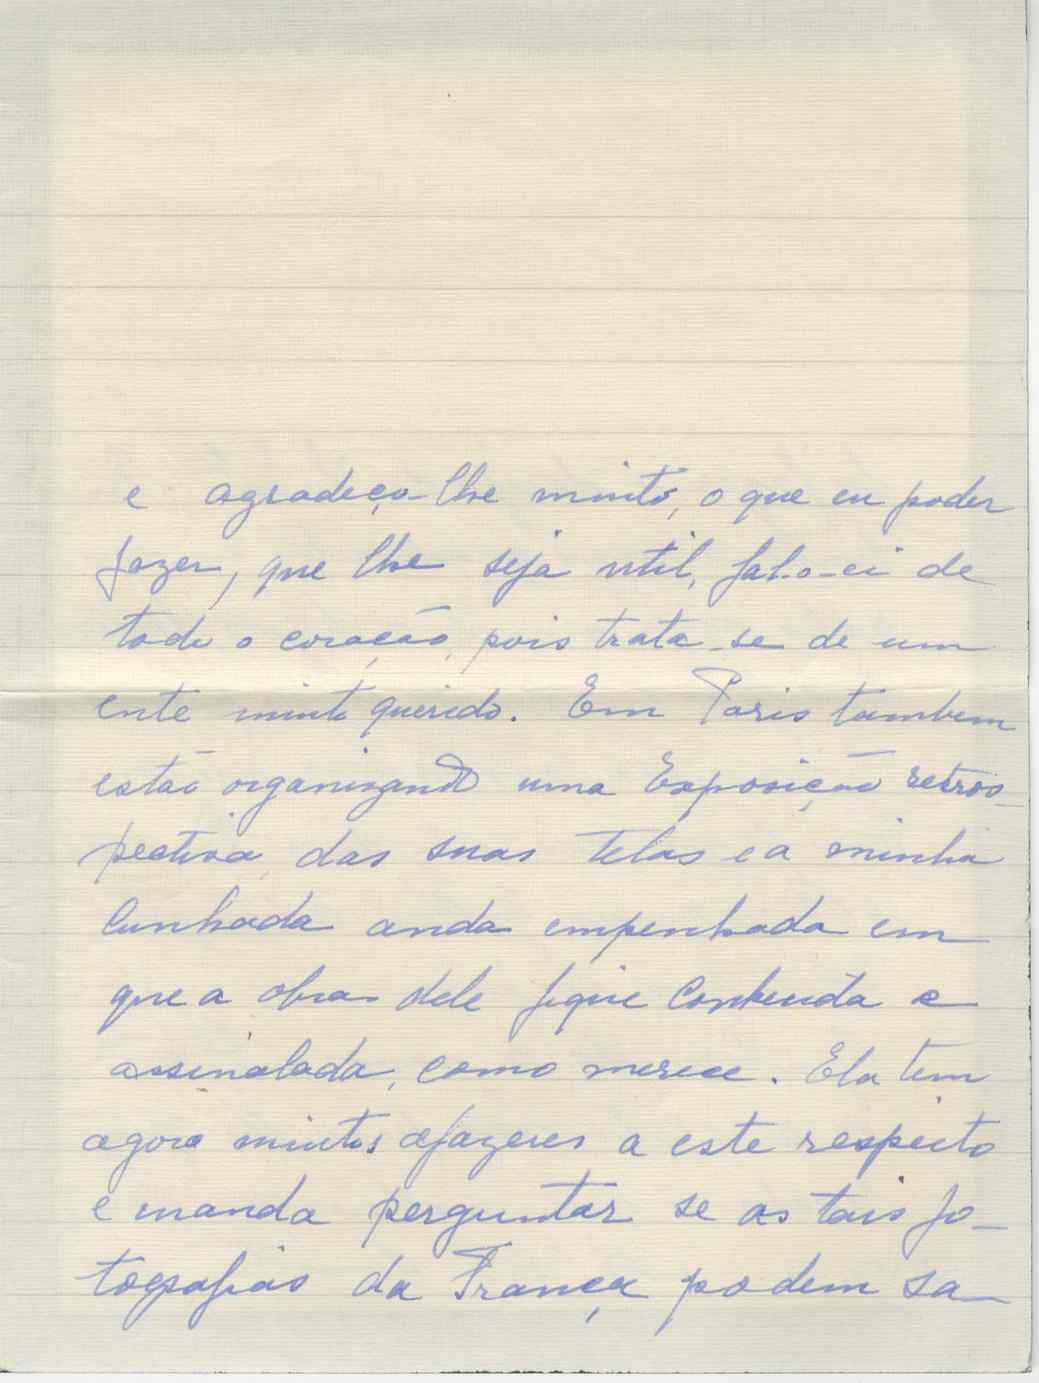 e agradeço-lhe muito, o que eu poder
fazer, que lhe seja util, fal-o-ei de
todo o coração, pois trata-se de um
ente muito querido. Em Paris tambem
estão organizando uma Exposição retros-
pectiva, das suas telas e a minha
Cunhada anda empenhada em
que a obra dele fique Conhecida e
assinalada, como merece. Ela tem
agora muitos afazeres a este respeito
e manda perguntar se as tais fo-
tografias da França podem sa-